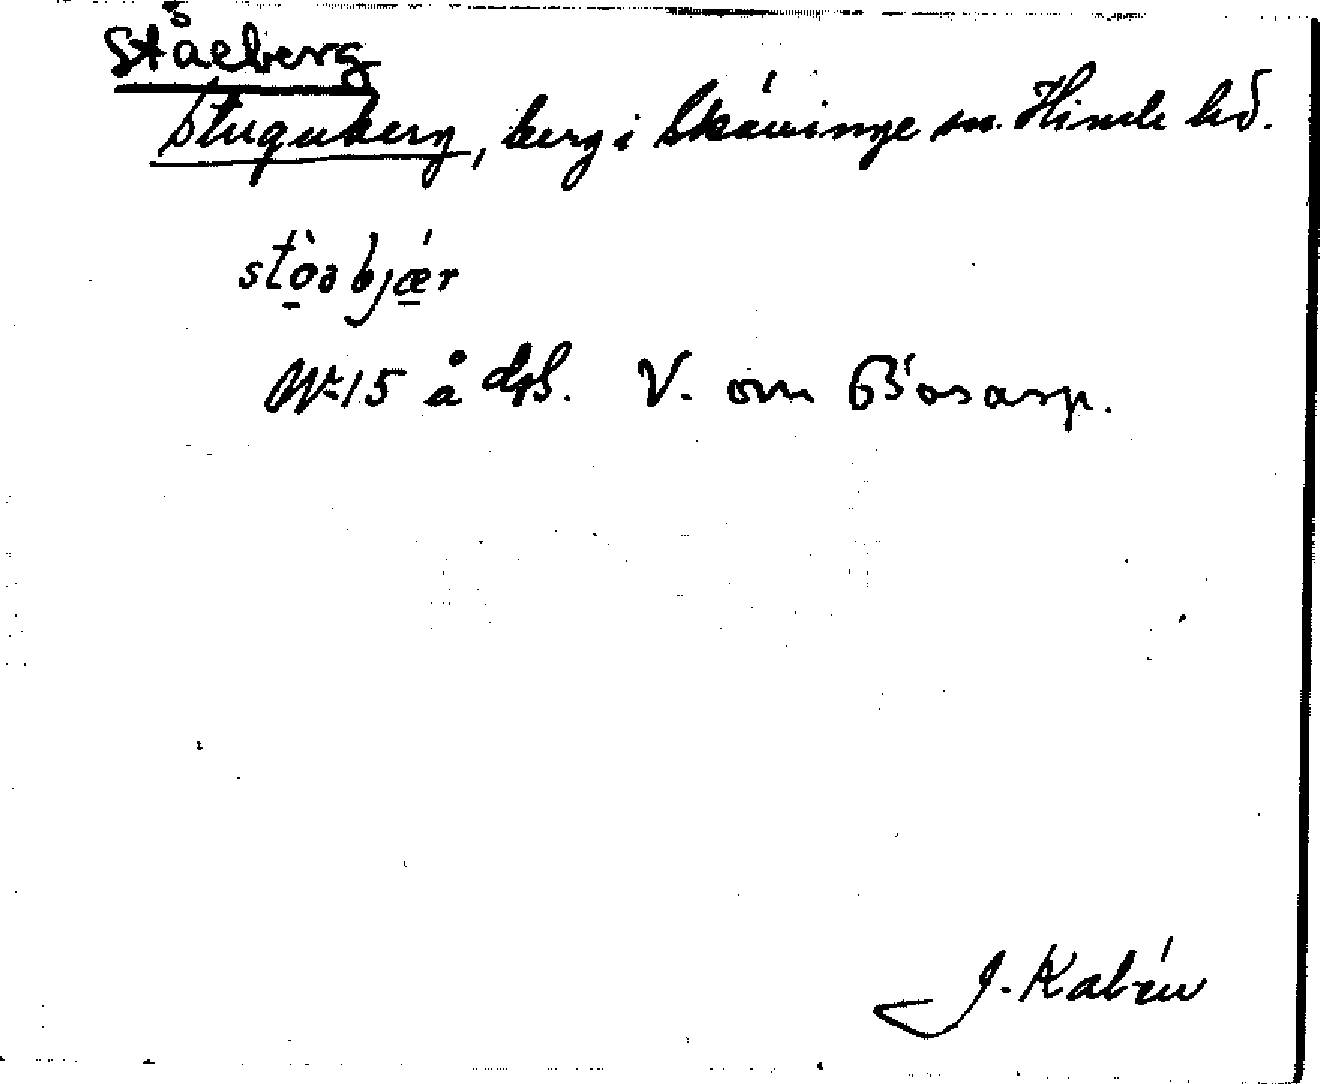 Ståeberg
Stuguberg, berg i Skällinge sn. Himle hd.
stò̠əbjǽ̠r
Nr 15 å dßl. V. om Bosarp.
J. Kalén